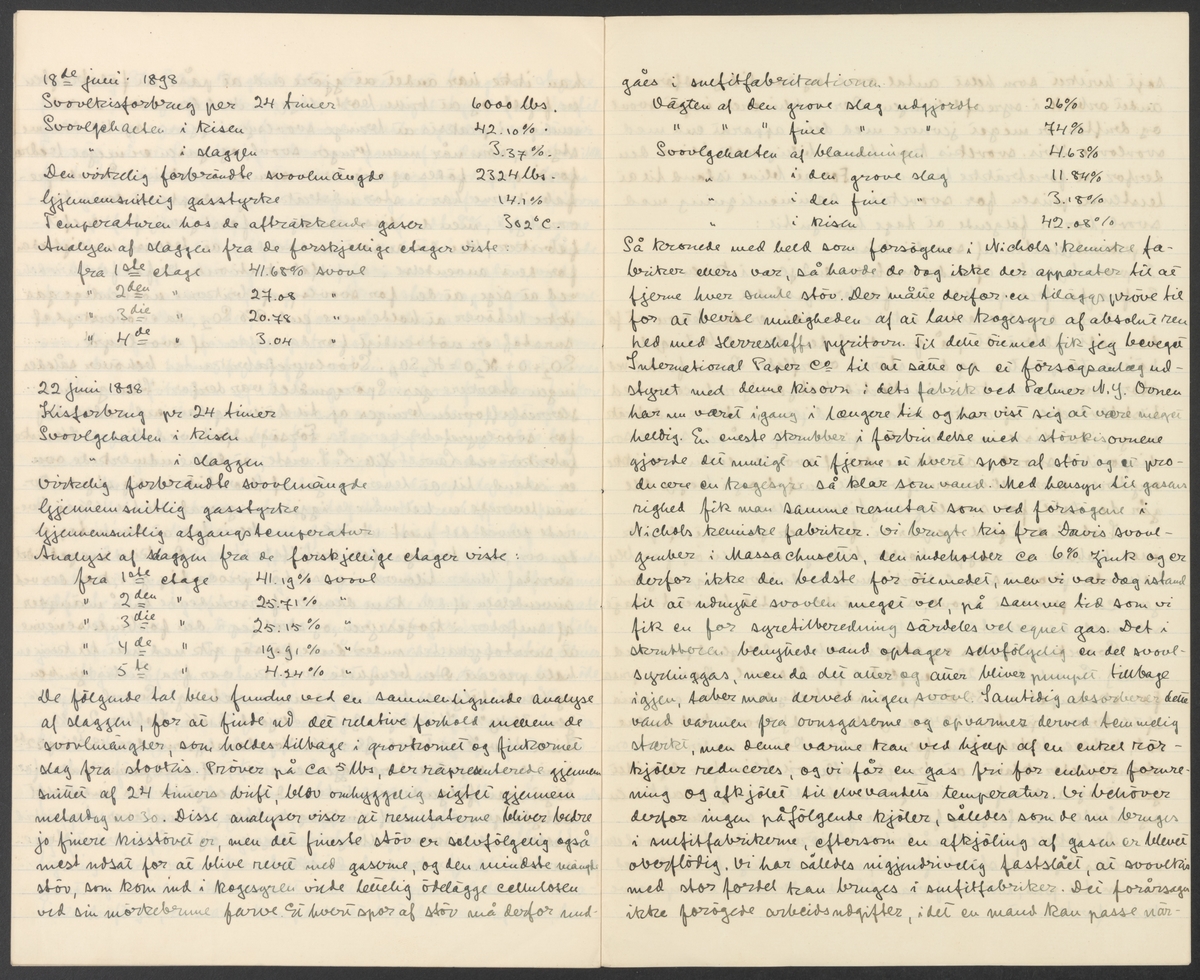 18de juni. 1898
Svovlkisforbrug per 24 timer 6000 lbs.
Svovlgehalten i kisen 42.10%.
" i slaggen 3.37%.
Den virkelig forbrændte svovlmängde 2324 lbs.
Gjennemsnitlig gasstyrke 14.1%
Temperaturen hos de aftrækkende gaser 302°C.
Analysen af slaggen fra de forskjellige etager viste:
fra 1ste etage 41.68% svovl
" 2den " 27.08 "
" 3die " 20.78 "
" 4de " 3.04 "
22 juni 1898
Kisforbrug pr 24 timer
Svovlgehalten i kisen
" i slaggen
Virkelig forbrändte svovlmängde
Gjennemsnitlig gasstyrke
Gjennemsnitlig afgangstemperatur
Analyse af slaggen fra de forskjellige etager viste:
fra 1ste etage 41.19% svovl
" 2den " 25.71% "
" 3die " 25.15% "
" 4de " 19.91% "
" 5te " 4.24% "
De følgende tal blev fundne ved en sammenlignende analyse
af slaggen, for at finde ud det relative forhold mellem de
svovlmängder, som holdes tilbage i grovkornet og finkornet
slag fra støvkis. Pröver på ca 5 lbs, der räpresenterede gjennem
snittet af 24 timers drift, blev omhyggelig sigtet gjennem
metaldug no 30. Disse analyser viser at resultaterne bliver bedre
jo finere kisstövet er, men det fineste stöv er selvfölgelig også
mest udsat for at blive revet med gaserne, og den mindste mängde
stöv, som kom ind i kogesyren vilde lettelig ödelägge cellulosen
ved sin mörkebrune farve. Et hvert spor af stöv må derfor und-
gåes i sulfitfabrikationen.
Vägten af den grove slag udgjordte 26%
" " " fine " " 74%
Svovlgehalten af blandningen 4.63%
" i den grove slag 11.84%
" i den fine " 3.18%
" i kisen 42.08%
Så kronede med held som forsögene i Nichols' kemiske fa-
briker ellers var, så havde de dog ikke der apparater til at
fjerne hver smule stöv. Der måtte derfor en tilägspröve til
for at bevise muligheden af at lave kogesyre af absolut ren
hed med Herreshoffs pyritovn. Til dette öiemed fik jeg beveget
International Paper Co til at sätte op et forsögsanläg ud-
styret med denne kisovn i dets fabrik ved Palmer N.Y. Ovnen
har nu været igang i længere tid og har vist sig at være meget
heldig. En eneste skrubber i förbindelse med stövkisovnene
gjorde det muligt at fjerne et hvert spor af stöv og at pro-
ducere en kogesyre så klar som vand. Med hensyn til gasens
righed fik man samme resultat som ved forsögene i
Nichols kemiske fabriker. Vi brugte kis fra Davis svovl-
gruber i Massachusetts, den indeholder ca 6% zink og er
derfor ikke den bedste for öiemedet, men vi var dog istand
til at udnytte svovlen meget vel, på samme tid som vi
fik en for syretilberedning särdeles vel egnet gas. Det i
skrubberen benyttede vand optager selvfölgelig en del svovl-
syrlinggas, men da det atter og atter bliver pumpet tilbage
igjen, taber man derved ingen svovl. Samtidig absorberer dette
vand varmen fra ovnsgaserne og opvarmer derved temmelig
stærkt, men denne varme kan ved hjælp af en enkel rör-
kjöler reduceres, og vi får en gas fri for enhver forure-
ning og afkjölet til elvevandets temperatur. Vi behöver
derfor ingen påfölgende kjöler, således som de nu bruges
i sulfitfabrikerne, eftersom en afkjöling af gasen er blevet
overflödig. Vi har således uigjendrivelig fastslået, at svovlkis
med stor fordel kan bruges i sulfitfabriker. Det forårsager
ikke forögede arbeidsudgifter, idet en mand kan passe når-